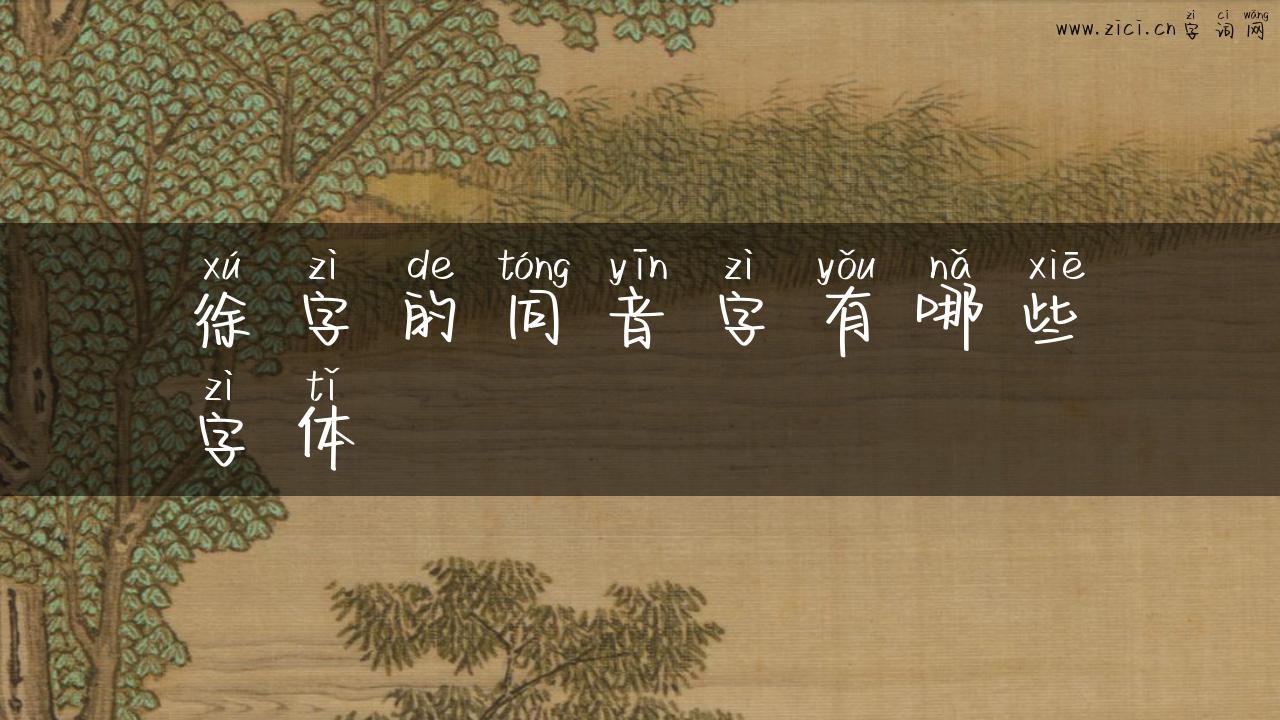 www.zici.cn 字词网
zì cí wǎng
xú zì de tóng yīn zì yǒu nǎ xiē
徐字的同音字有哪些
zì tǐ
字体